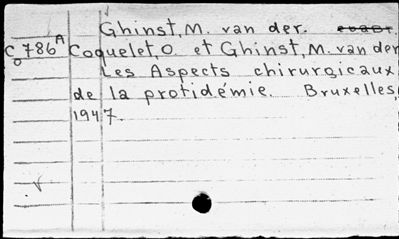 Ghinst, M. van der.
C 786 A Coquelet, O et Ghinst, M. van der
o Les Aspects chirurgicaux
de la protidémie. Bruxelles,
1947.